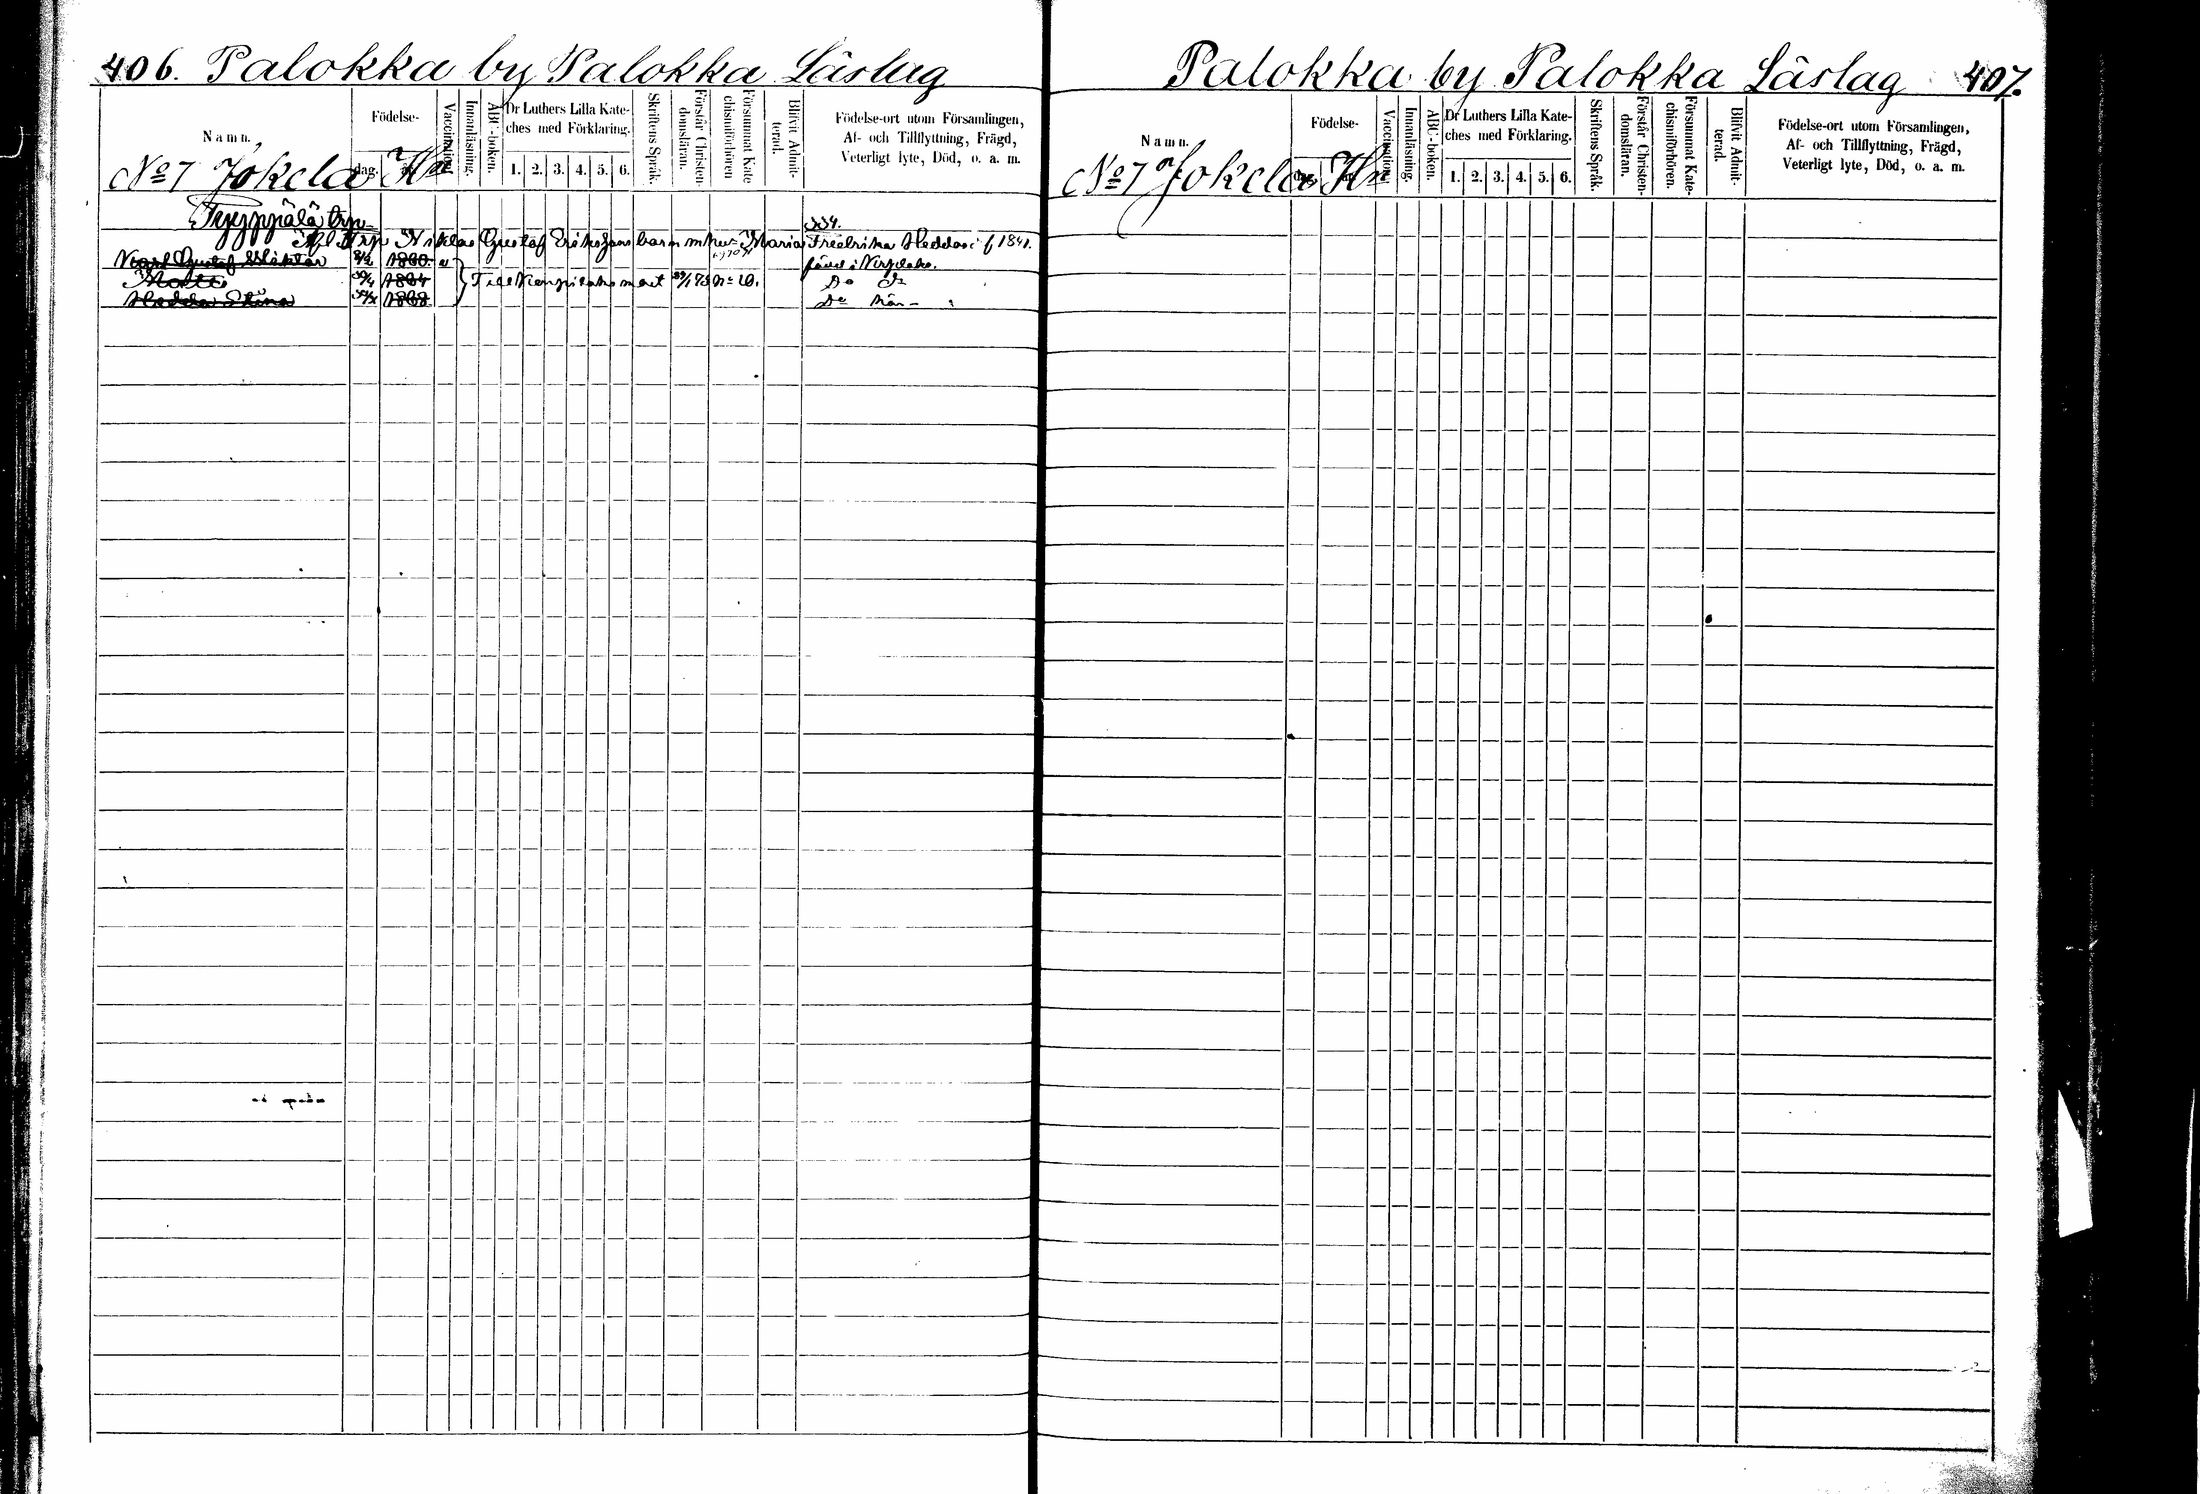 406. Palokka by Palokka Läslag
Namn.
Födelse-
dag.
Vaccination.
Innanläsning.
ABC-boken.
Dr Luthers Lilla Kate-
ches med Förklaring.
1. 2. 3. 4. 5. 6.
Skriftens Språk.
Förstår Christen-
domsläran.
Försummat Kate
chismiförhören
Blifvit Admit-
terad.
Födelse-ort utom Församlingen,
Af- och Tillflyttning, Frägd,
Veterligt lyte, Död, o. a. m.
No 7 Jokela Hn
Tyyppälä trp
334.
Trp Niklas Gustaf Erikssons barn m hu Maria Fredrika Heddas f 1841.
Karl Gustaf Wiktor 1860
Matts 1864
No 10. Do Do
Hedda Stina 1868 Do
Palokka by Palokka Läslag 407.
Namn.
Födelse-
Vaccination.
Innanläsning.
ABC-boken.
Dr Luthers Lilla Kate-
ches med Förklaring.
1. 2. 3. 4. 5. 6.
Skriftens Språk.
Förstår Christen-
domsläran.
Försummat Kate-
chismiförhören.
Blifvit Admit-
terad.
Födelse-ort utom Församlingen,
Af- och Tillflyttning, Frägd,
Veterligt lyte, Död, o. a. m.
No 7 Jokela Hn